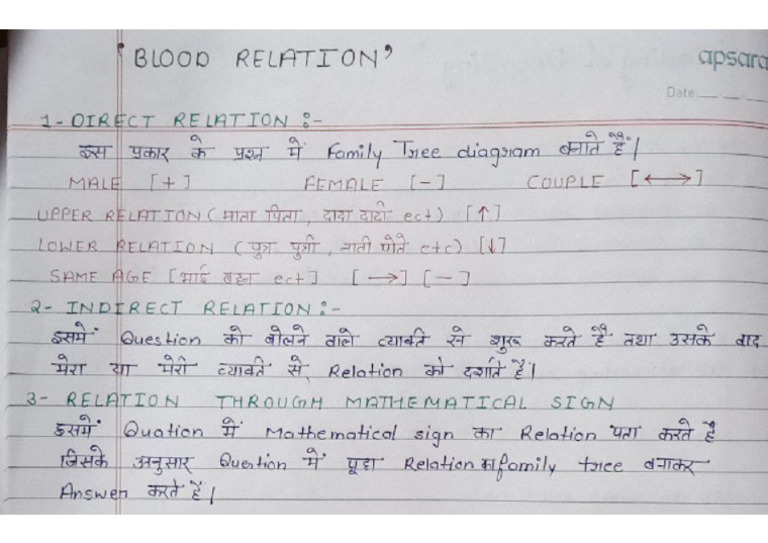 'BLOOD RELATION'
apsara
Date:
1- DIRECT RELATION :-
इस प्रकार के प्रश्न में Family Tree diagram बनाते हैं।
MALE [+] FEMALE [-] COUPLE [⟷]
UPPER RELATION (माता पिता, दादा दादी ect) [↑]
LOWER RELATION (पुत्र पुत्री, नाती पोते etc) [↓]
SAME AGE [भाई बहन ect] [→] [-]
2- INDIRECT RELATION :-
इसमें Question को बोलने वाले व्यक्ति से शुरू करते हैं तथा उसके बाद
मेरा या मेरी व्यक्ति से Relation को दर्शाते हैं।
3- RELATION THROUGH MATHEMATICAL SIGN
इसमें Quation में Mathematical sign का Relation पता करते हैं
जिसके अनुसार Question में पूछा Relation का family tree बनाकर
Answer करते हैं।